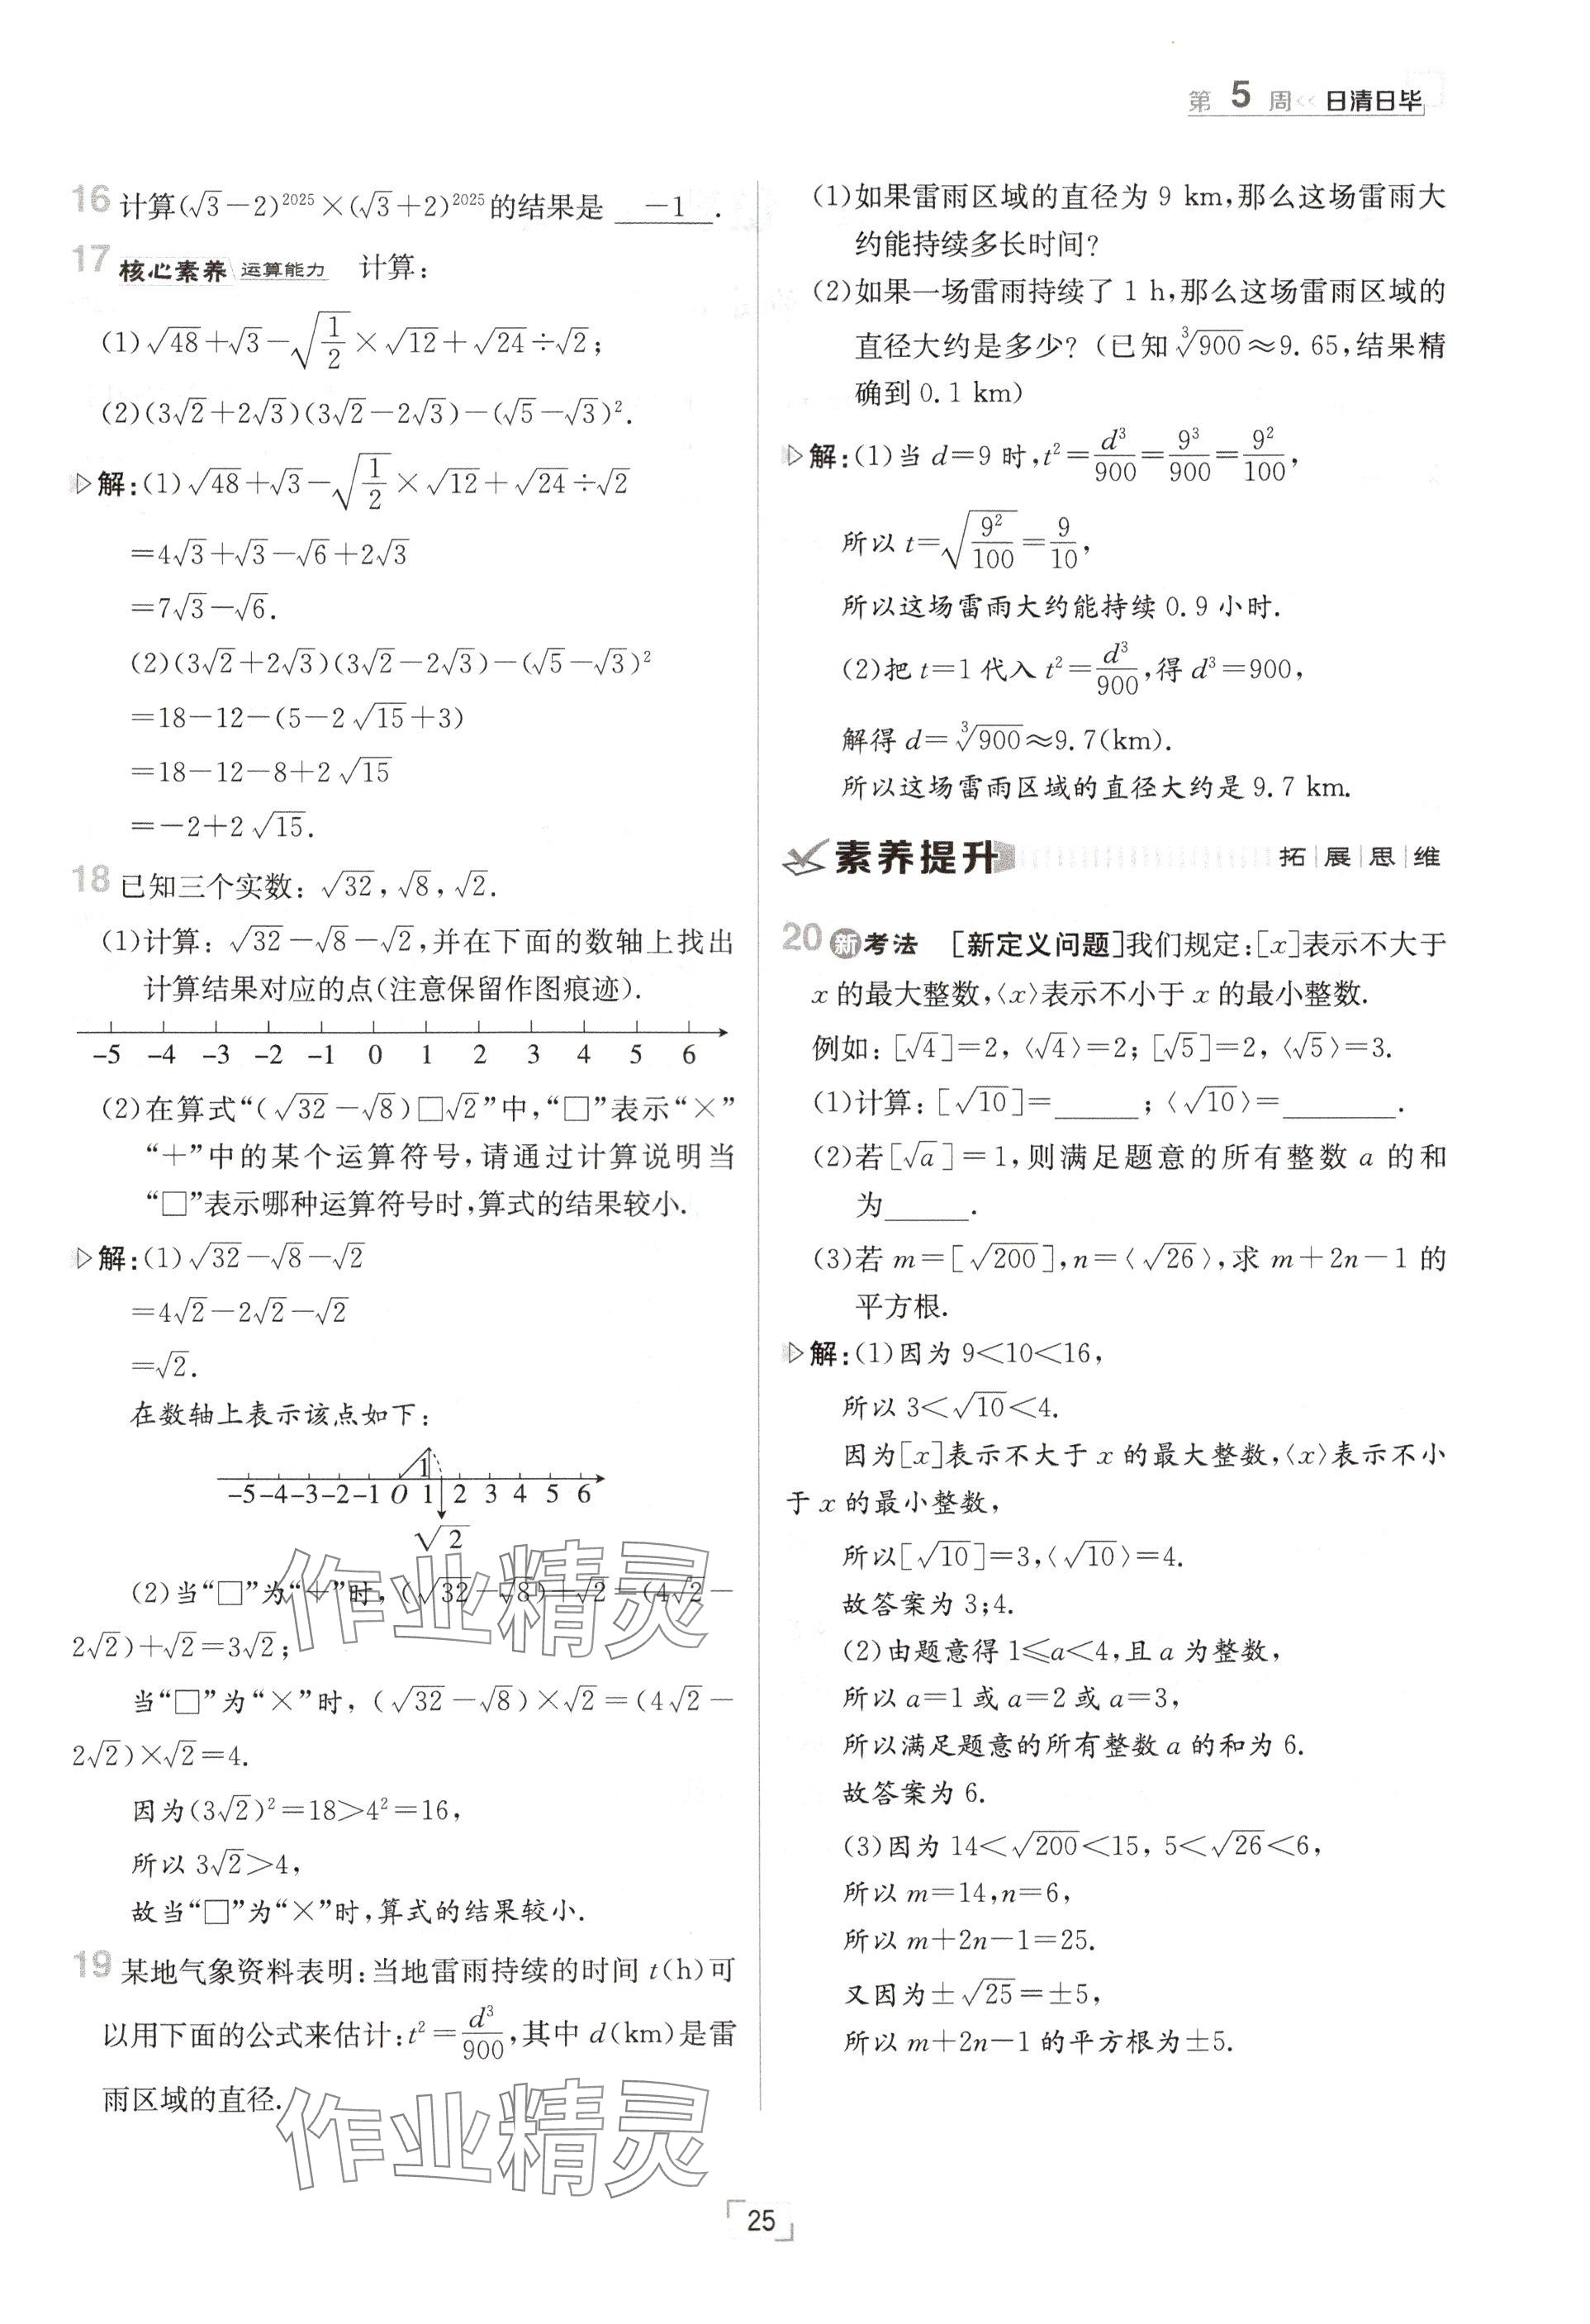 第 5 周 << 日清日毕
16 计算(√3-2)²⁰²⁵×(√3+2)²⁰²⁵的结果是 -1 .
17 核心素养 运算能力 计算:
(1)√48+√3-√(1/2)×√12+√24÷√2;
(2)(3√2+2√3)(3√2-2√3)-(√5-√3)².
▷解:(1)√48+√3-√(1/2)×√12+√24÷√2
=4√3+√3-√6+2√3
=7√3-√6.
(2)(3√2+2√3)(3√2-2√3)-(√5-√3)²
=18-12-(5-2√15+3)
=18-12-8+2√15
=-2+2√15.
18 已知三个实数: √32, √8, √2.
(1)计算: √32-√8-√2,并在下面的数轴上找出
计算结果对应的点(注意保留作图痕迹).
-5 -4 -3 -2 -1 0 1 2 3 4 5 6
(2)在算式“(√32-√8)□√2”中,“□”表示“×”
“+”中的某个运算符号,请通过计算说明当
“□”表示哪种运算符号时,算式的结果较小.
▷解:(1)√32-√8-√2
=4√2-2√2-√2
=√2.
在数轴上表示该点如下:
1
-5-4-3-2-1 O 1 2 3 4 5 6
√2
(2)当“□”为“+”时, (√32-√8)+√2=(4√2-
2√2)+√2=3√2;
当“□”为“×”时, (√32-√8)×√2=(4√2-
2√2)×√2=4.
因为(3√2)²=18>4²=16,
所以 3√2>4,
故当“□”为“×”时,算式的结果较小.
19 某地气象资料表明:当地雷雨持续的时间 t(h)可
以用下面的公式来估计:t²=d³/900,其中 d(km)是雷
雨区域的直径.
(1)如果雷雨区域的直径为 9 km,那么这场雷雨大
约能持续多长时间?
(2)如果一场雷雨持续了 1 h,那么这场雷雨区域的
直径大约是多少? (已知 ³√900≈9.65,结果精
确到 0.1 km)
▷解:(1)当 d=9 时,t²=d³/900=9³/900=9²/100,
所以 t=√(9²/100)=9/10,
所以这场雷雨大约能持续 0.9 小时.
(2)把 t=1 代入 t²=d³/900,得 d³=900,
解得 d=³√900≈9.7(km).
所以这场雷雨区域的直径大约是 9.7 km.
素养提升 拓|展|思|维
20 新考法 [新定义问题]我们规定:[x]表示不大于
x 的最大整数,⟨x⟩表示不小于 x 的最小整数.
例如: [√4]=2, ⟨√4⟩=2; [√5]=2, ⟨√5⟩=3.
(1)计算: [√10]=_____; ⟨√10⟩=_______.
(2)若[√a]=1,则满足题意的所有整数 a 的和
为_____.
(3)若 m=[√200],n=⟨√26⟩,求 m+2n-1 的
平方根.
▷解:(1)因为 9<10<16,
所以 3<√10<4.
因为[x]表示不大于 x 的最大整数,⟨x⟩表示不小
于 x 的最小整数,
所以[√10]=3,⟨√10⟩=4.
故答案为 3;4.
(2)由题意得 1⩽a<4,且 a 为整数,
所以 a=1 或 a=2 或 a=3,
所以满足题意的所有整数 a 的和为 6.
故答案为 6.
(3)因为 14<√200<15, 5<√26<6,
所以 m=14,n=6,
所以 m+2n-1=25.
又因为±√25=±5,
所以 m+2n-1 的平方根为±5.
作业精灵
作业精灵
25